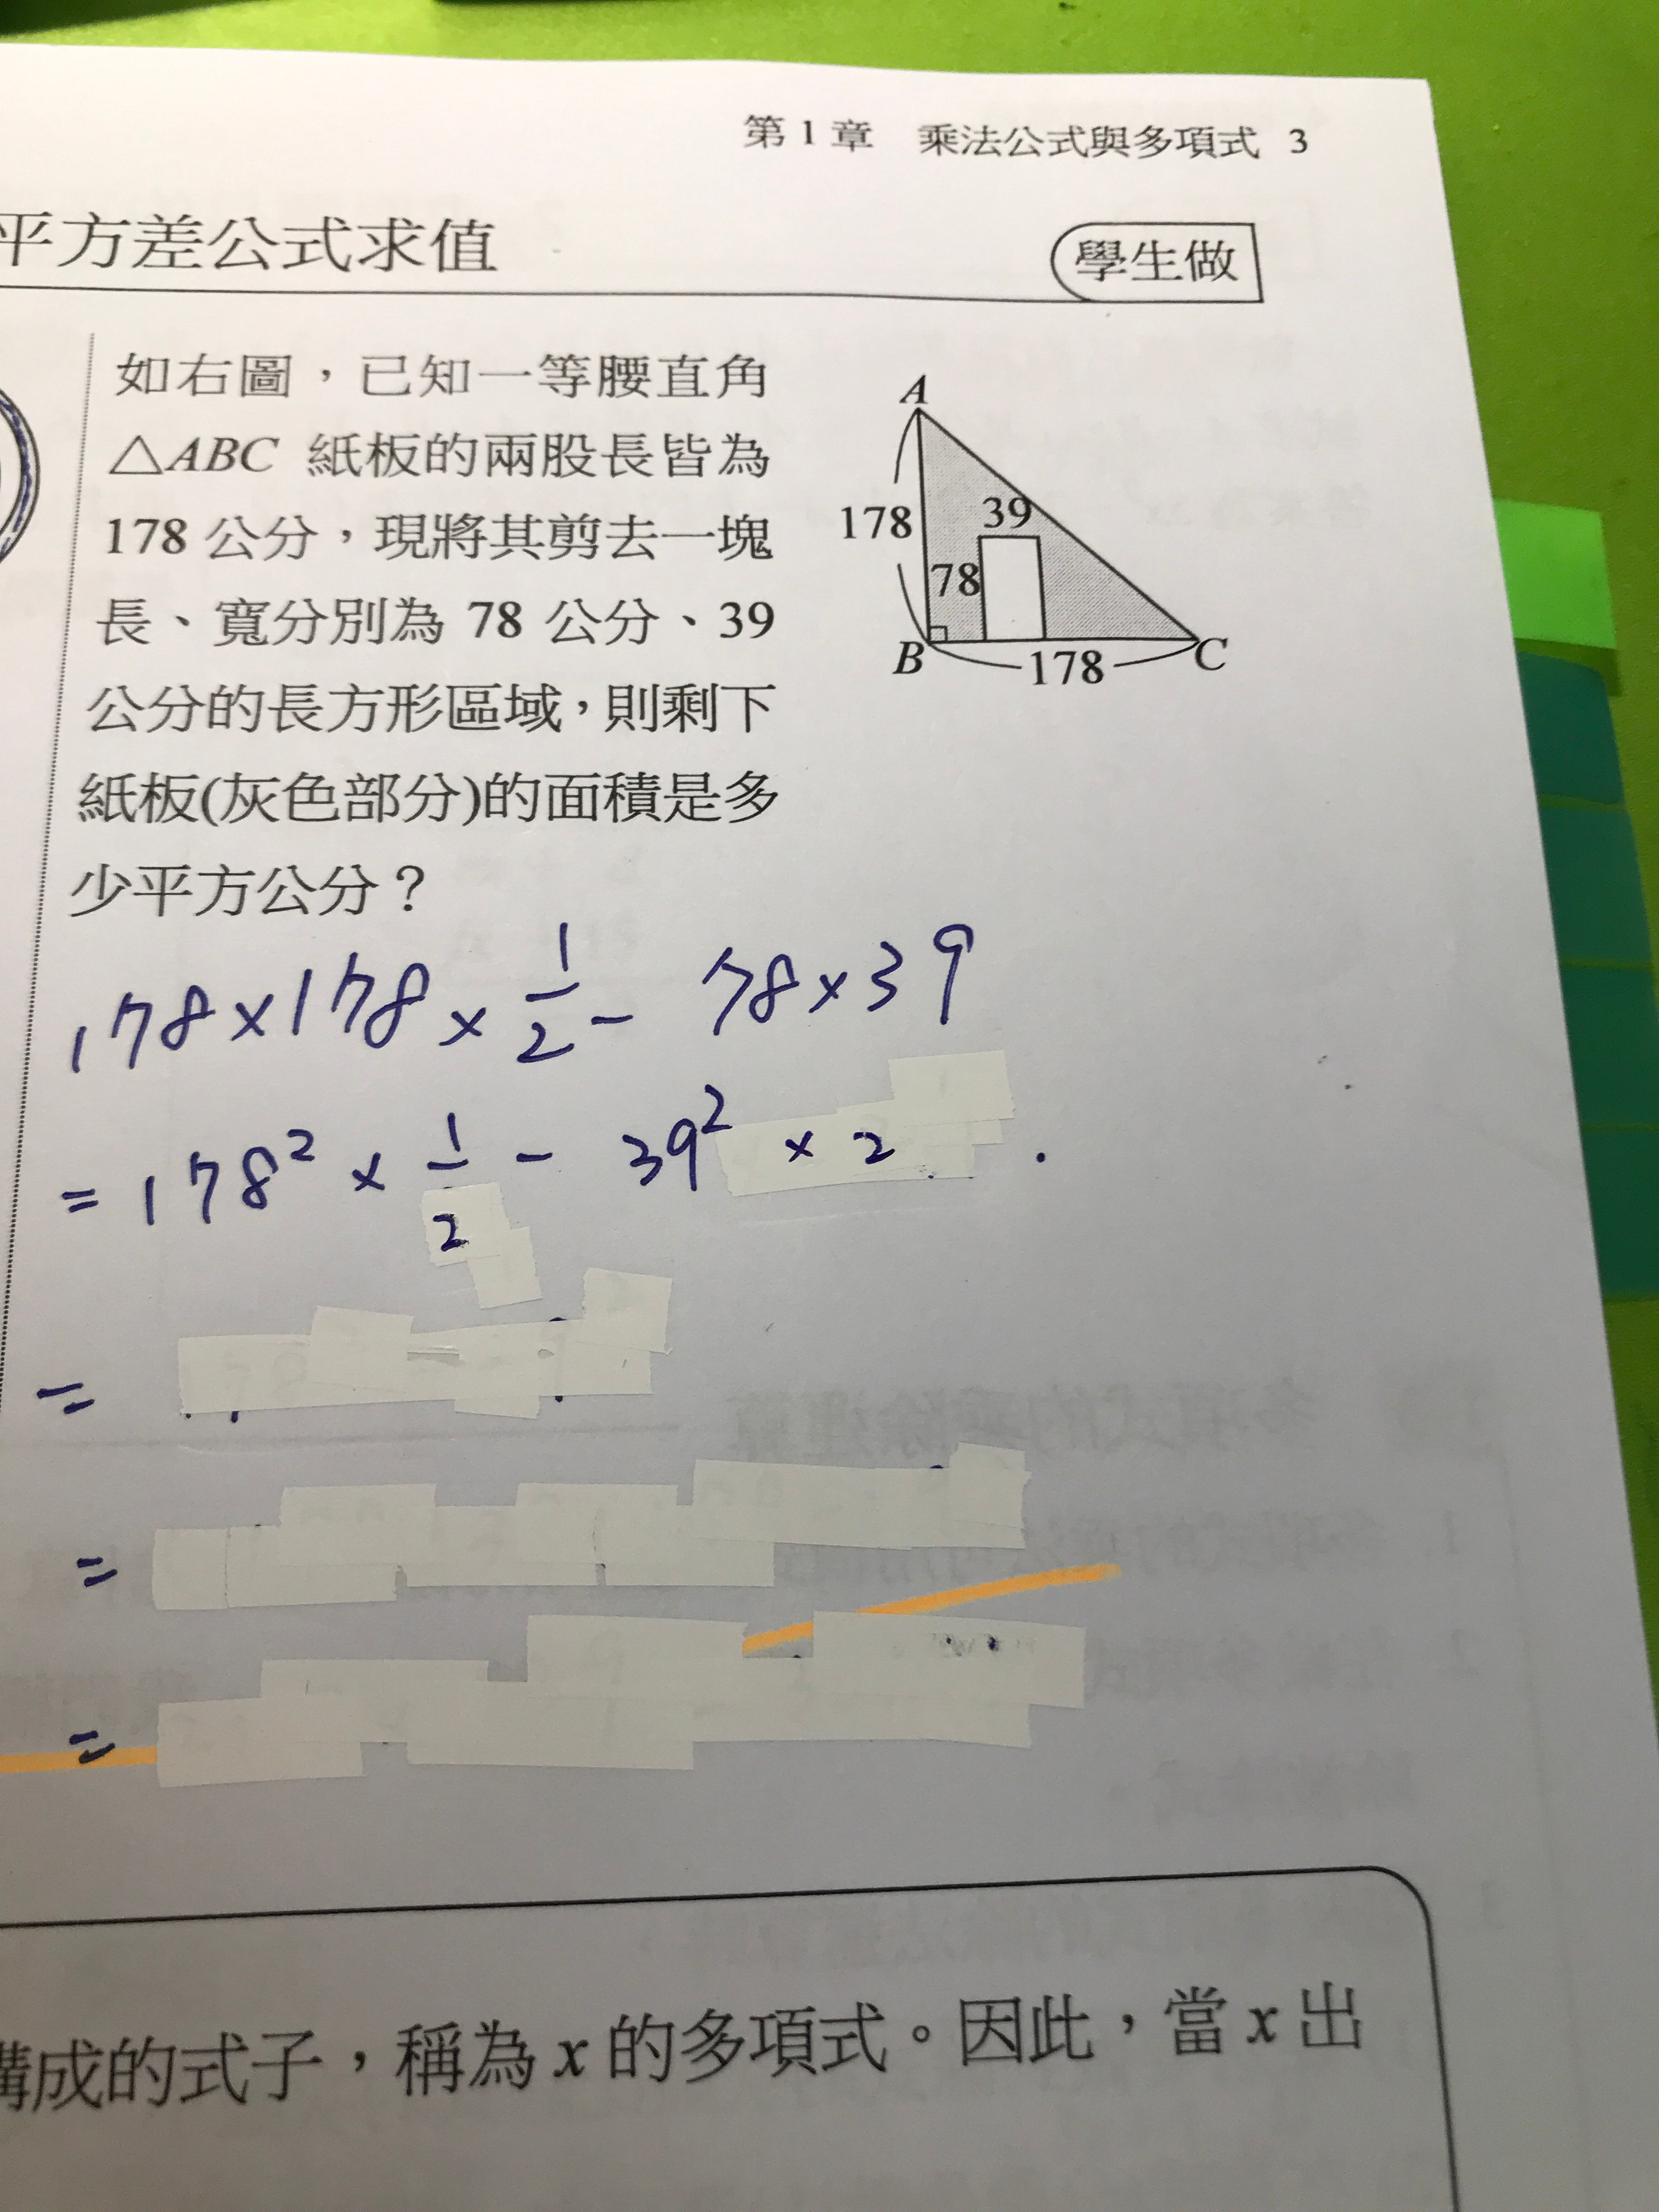 第1章 乘法公式與多項式 3
平方差公式求值
學生做
如右圖，已知一等腰直角
△ABC 紙板的兩股長皆為
178 公分，現將其剪去一塊
長、寬分別為 78 公分、39
公分的長方形區域，則剩下
紙板(灰色部分)的面積是多
少平方公分？
A
178
39
78
B
178
C
178×178×1/2- 78×39
=178²×1/2-39²×2
=
=
=
構成的式子，稱為 x 的多項式。因此，當 x 出